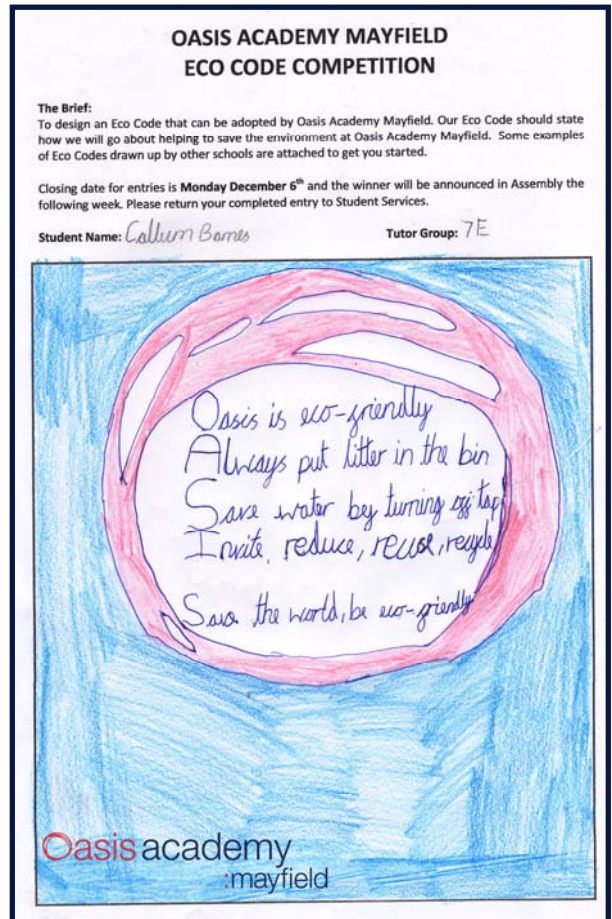 OASIS ACADEMY MAYFIELD
ECO CODE COMPETITION
The Brief:
To design an Eco Code that can be adopted by Oasis Academy Mayfield. Our Eco Code should state
how we will go about helping to save the environment at Oasis Academy Mayfield. Some examples
of Eco Codes drawn up by other schools are attached to get you started.
Closing date for entries is Monday December 6th and the winner will be announced in Assembly the
following week. Please return your completed entry to Student Services.
Student Name: Callum Barnes Tutor Group: 7E
Oasis is eco-friendly
Always put litter in the bin
Save water by turning off tap
Invite, reduce, reuse, recycle
Save the world, be eco-friendly
Oasis academy
:mayfield